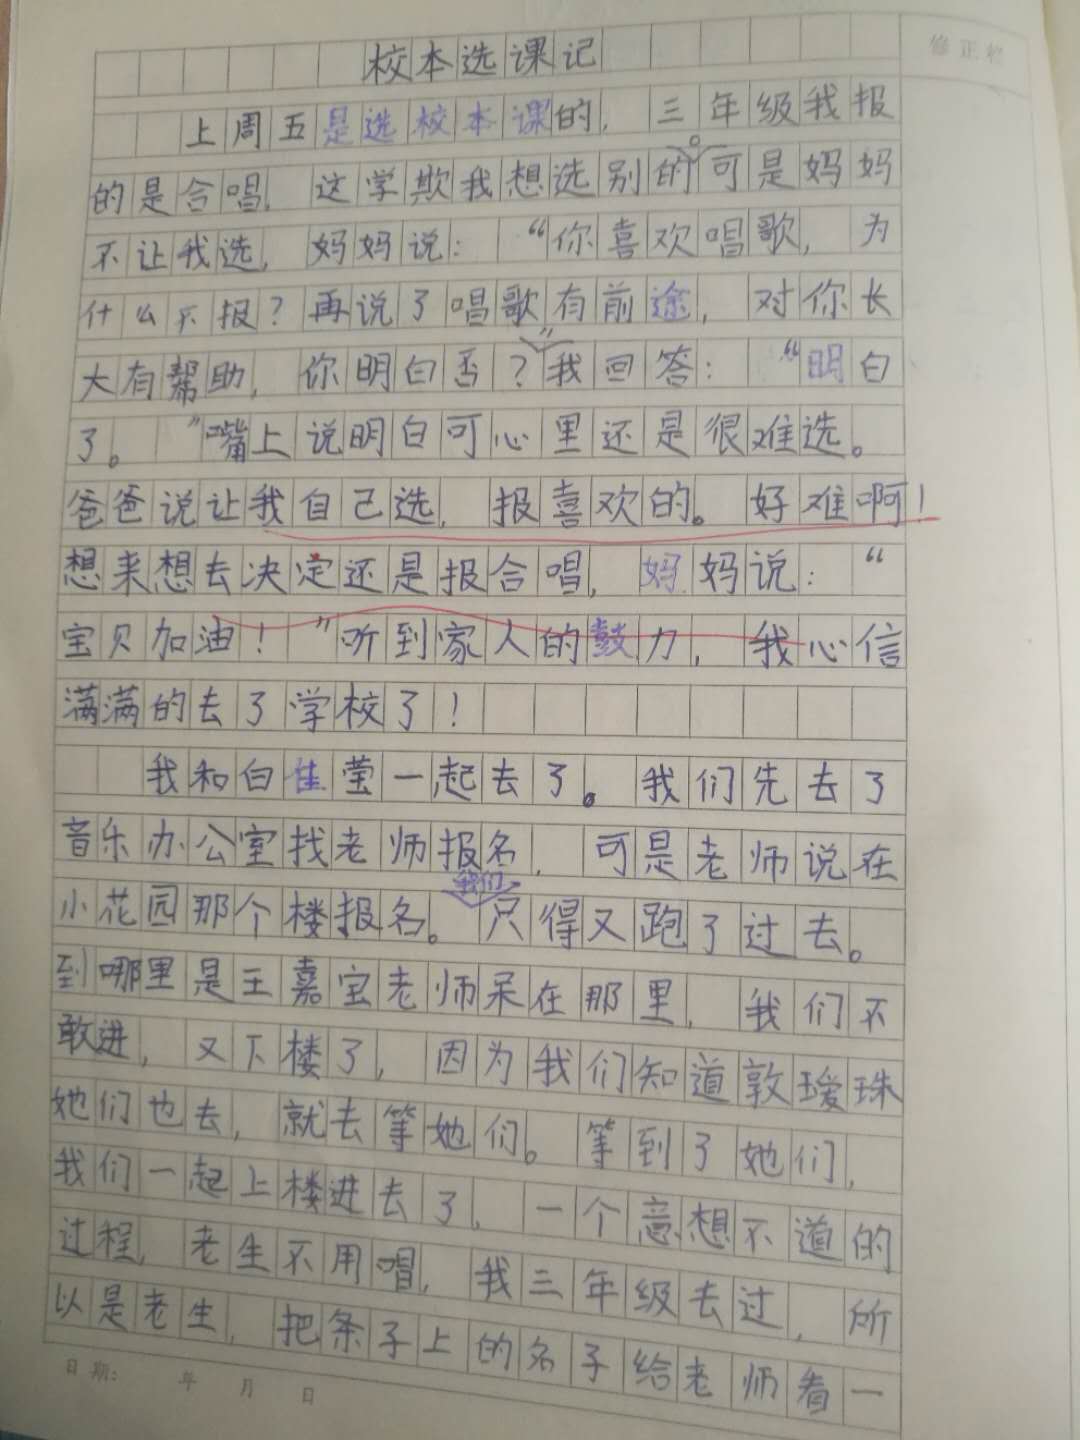 修正栏
校本选课记
上周五是选校本课的，三年级我报
的是合唱，这学欺我想选别的。可是妈妈
不让我选，妈妈说：“你喜欢唱歌，为
什么不报？再说了唱歌有前途，对你长
大有帮助，你明白否？”我回答：“明白
了。”嘴上说明白可心里还是很难选。
爸爸说让我自己选，报喜欢的。好难啊！
想来想去决定还是报合唱，妈妈说：“
宝贝加油！”听到家人的鼓力，我心信
满满的去了学校了！
我和白佳莹一起去了。我们先去了
音乐办公室找老师报名，可是老师说在
小花园那个楼报名。我们只得又跑了过去。
到哪里是王嘉宝老师呆在那里，我们不
敢进，又下楼了，因为我们知道敦瑷珠
她们也去，就去等她们。等到了她们，
我们一起上楼进去了，一个意想不道的
过程，老生不用唱，我三年级去过，所
以是老生，把条子上的名子给老师看一
日期： 年 月 日